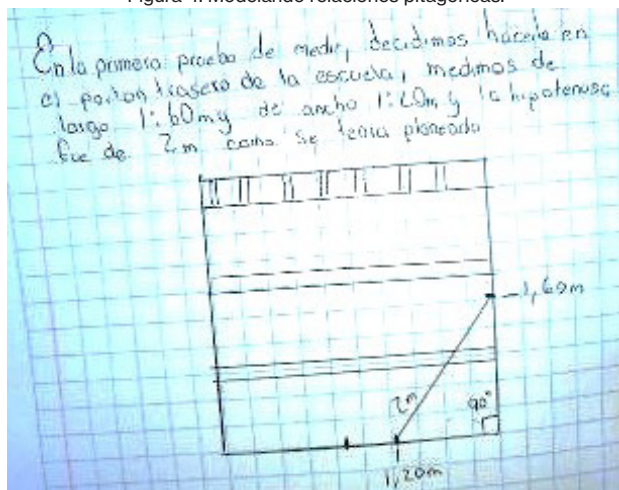 Figura 4. Modelando relaciones pitagóricas.
En la primera prueba de medir, decidimos hacerla en
el porton trasero de la escuela, medimos de
largo 1:60m y de ancho 1:20m y la hipotenusa
fue de 2m como se tenia planeado
1,60m
2m
90°
1,20m